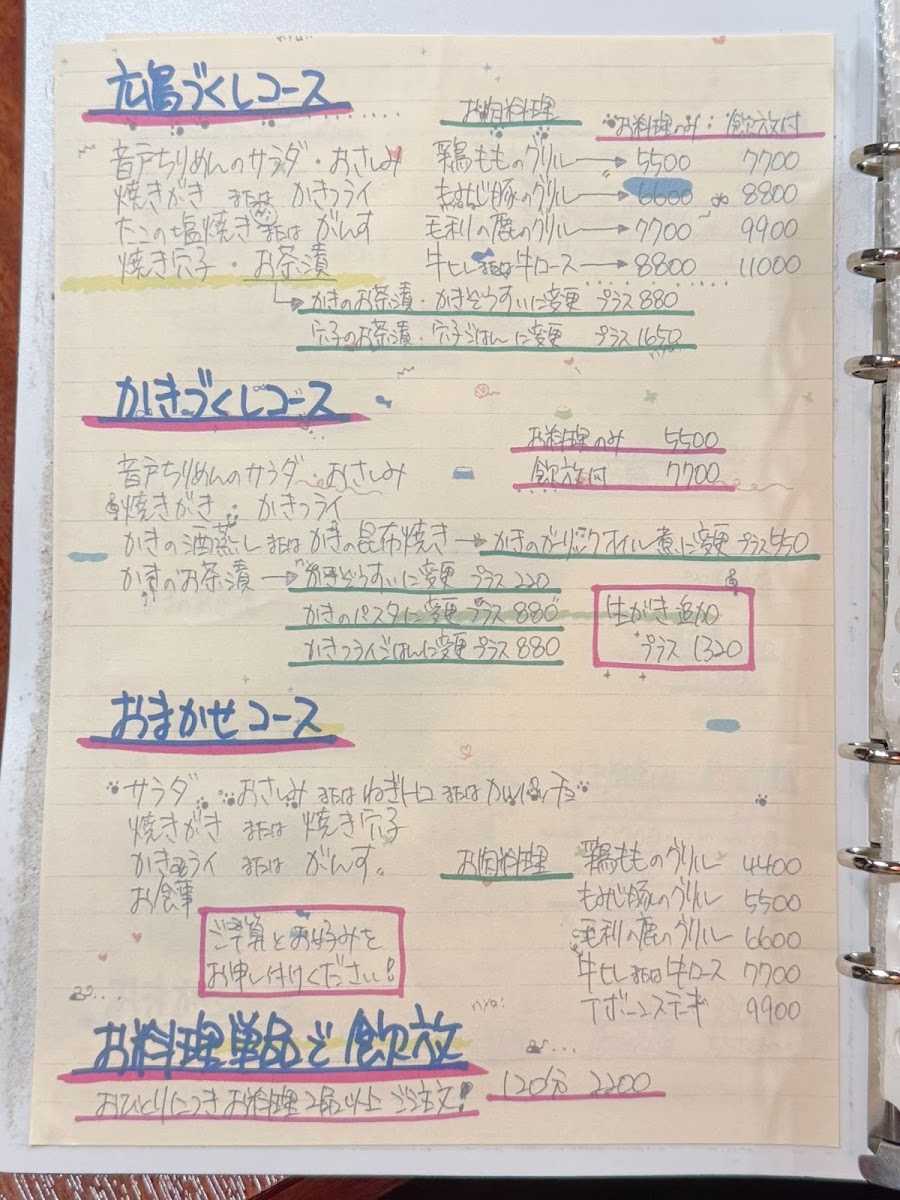 広島づくしコース
お肉料理
お料理のみ：飲放付
音戸ちりめんのサラダ・おさしみ 鶏もものグリル→5500 7700
焼きがき または かきフライ もみじ豚のグリル→6600 8800
たこの塩焼き または がんす 毛利の鹿のグリル→7700 9900
焼き穴子・お茶漬 牛ヒレまたは牛ロース→8800 11000
→かきのお茶漬・かきぞうすいに変更 プラス880
穴子のお茶漬・穴子ごはんに変更 プラス1650
かきづくしコース
お料理のみ 5500
飲放付 7700
音戸ちりめんのサラダ・おさしみ
焼きがき・かきフライ
かきの酒蒸し または かきの昆布焼き→かきのガーリックオイル煮に変更 プラス550
かきのお茶漬→かきぞうすいに変更 プラス220
かきのパスタに変更 プラス880
かきフライごはんに変更 プラス880
生がき追加
プラス1320
おまかせコース
サラダ おさしみ または ねぎトロ または カルパッチョ
焼きがき または 焼き穴子
かきフライ または がんす。
お食事
お肉料理 鶏もものグリル 4400
もみじ豚のグリル 5500
毛利の鹿のグリル 6600
牛ヒレまたは牛ロース 7700
Tボーンステーキ 9900
ご予算とお好みを
お申し付けください!
nya!
お料理単品で飲放
おひとりにつきお料理2品以上ご注文! 120分 2200